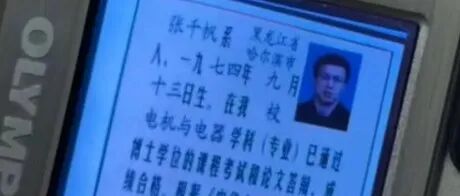 OLYMP
张千帆系 黑龙江省
哈尔滨市
人,一九七四年九月
十三日生。在我校
电机与电器学科(专业)已通过
博士学位的课程考试和论文答辩,成
绩合格。